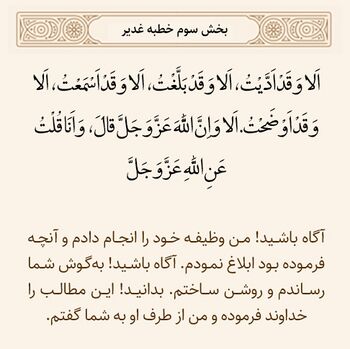 بخش سوم خطبه غدیر
اَلا وَ قَدْ اَدَّیْتُ، اَلا وَ قَدْ بَلَّغْتُ، اَلا وَ قَدْ اَسْمَعْتُ، اَلا
وَ قَدْ اَوْضَحْتُ. اَلا وَ اِنَّ اللهَ عَزَّ وَ جَلَّ قالَ، وَ اَنَا قُلْتُ
عَنِ اللهِ عَزَّ وَ جَلَّ
آگاه باشید! من وظیفه خود را انجام دادم و آنچه
فرموده بود ابلاغ نمودم. آگاه باشید! به‌گوش شما
رساندم و روشن ساختم. بدانید! این مطالب را
خداوند فرموده و من از طرف او به شما گفتم.